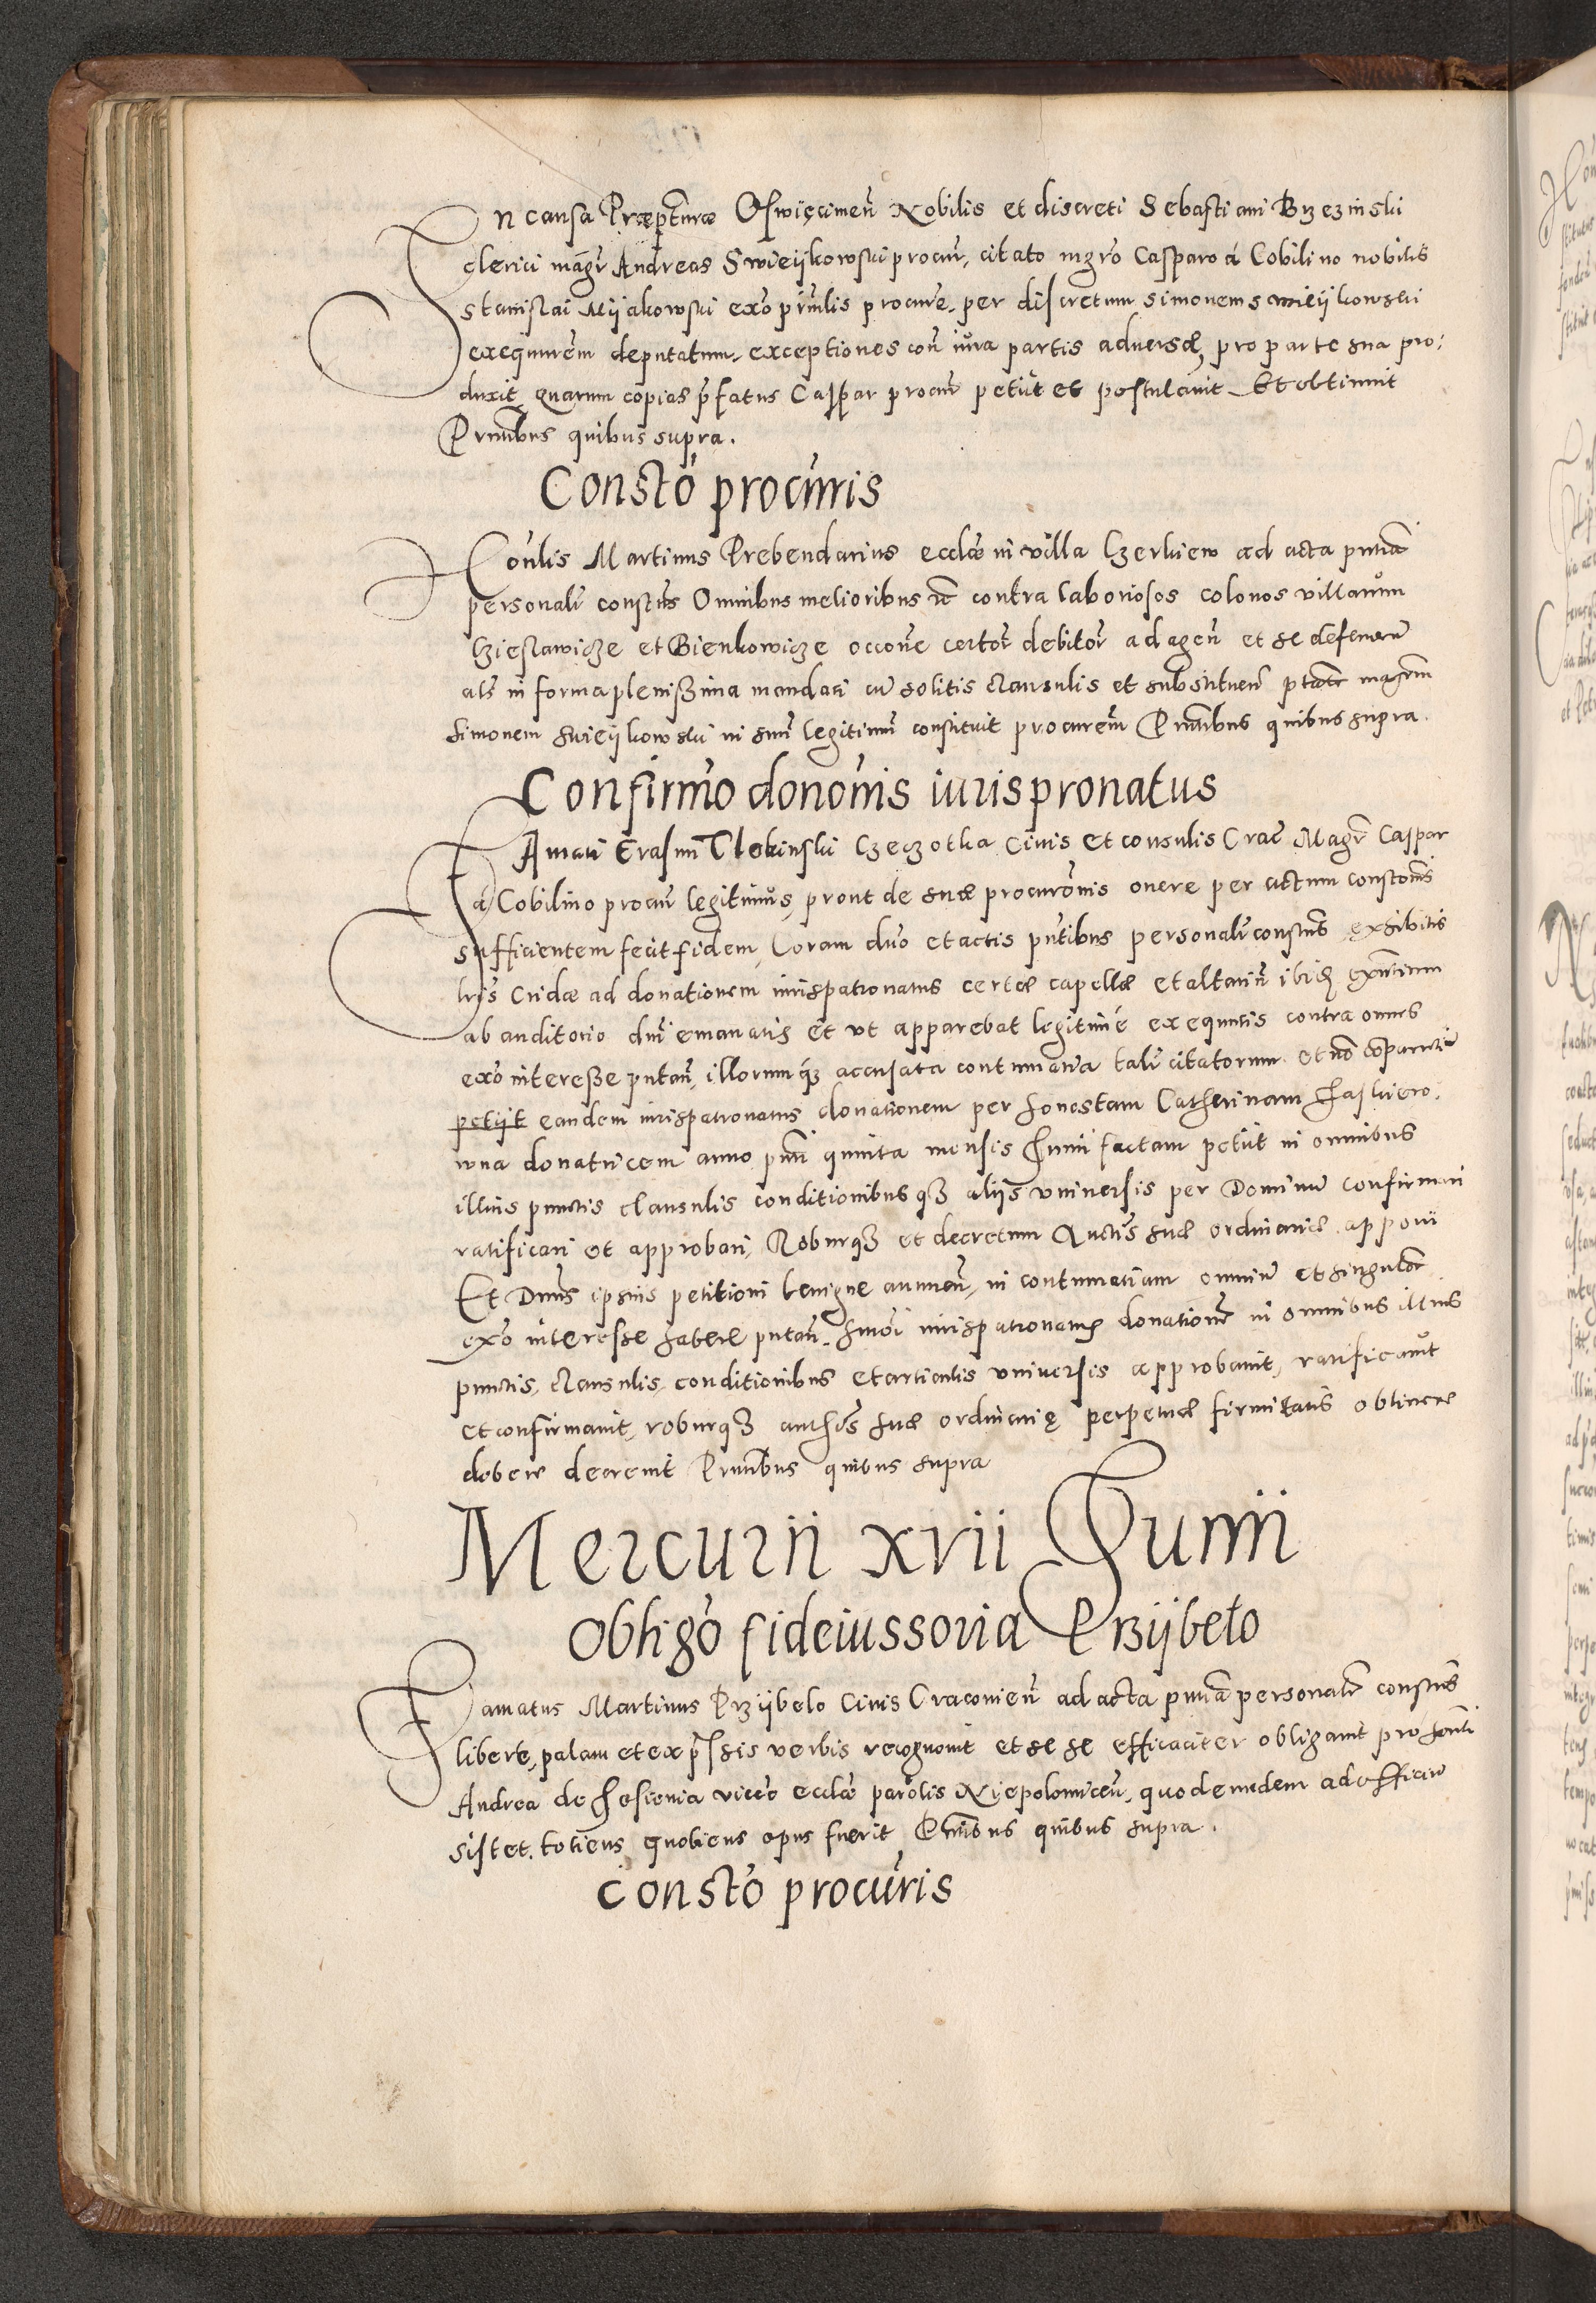 In causa Præpturæ Oswięcimen Nobilis et discreti Sebastiani Brzezinski
clerici magr Andreas Swieijkowski procur, citato mgro Casparo á Cobilino nobilis
Stanislai Mijakowski exo prinlis procure, per discretum Simonem Swieijkowski
exequurem deputatum, exceptiones con iura partis adversæ, pro parte sua pro:
duxit, quarum copias pfatus Caspar procur petiit et postulavit Et obtinuit
Pntibus quibus supra.
Constó procúris
Honlis Martinus Prebendarius ecclæ in villa Czerkiew ad acta pntia
personalr constus Omnibus melioribus contra laboriosos colonos villarum
Czieslawicze et Bienkowicze occone certor debitor ad agen et se defenen
als in forma plenissima mandati cu solitis clausulis et substituen ptate magrm
Simonem Swieijkowski in suu legitimu constituit procurem Pntibus quibus supra.
Confirmó donónis iurispronatus
Famati Erasmi Czeczotka Civis et consulis Crac Magr Caspar
á Cobilino procur legitimus, prout de suæ procuronis onere per actum constonis
sufficientem fecit fidem, Coram dno et actis pntibus personalr constus exhibitis
lris Cridæ ad donationem iurispatronatus certæ capellæ et altarin ibid exntium
ab auditorio dni emanatis et ut apparebat legitimé exequutis contra omnes
exo interesse putan, illorumq accusata contumatia talr citatorum et no comparentiu
petijt eandem iurispatronatus donationem per honestam Catherinam Haskiero:
wna donatricem anno pnti quinta mensis Junii factam petiit in omnibus
illius punctis clausulis conditionibusq aliis universis per Dominu confirmari
ratificari et approbari, Roburq et decretum Auctis suæ ordinariæ apponi
Et Dnus ipsius petitioni benigne annuen, in contumatiam omniu et singulor
exo interesse habere putan, hmoi iurispatronatus donatione in omnibus illius
punctis, clausulis, conditionibus et articulis universis approbavit, ratificavit
et confirmavit, roburq authis suæ ordinarię perpetuæ firmitatis obtinere
debere decrevit Pntibus quibus supra
Mercurii xvii Junii
Obligó fideiussoria Przijbelo
Famatus Martinus Przijbelo Civis Cracovien ad acta pntia personalr constus
libere, palam et expssis verbis recognovit et se se efficaciter obligavit pro honli
Andrea de Jesienia viceo ecclæ parolis Niepolomicen, quod eundem ad officiu
sistet, totiens quotiens opus fuerit Pntibus quibus supra.
Constó procúris